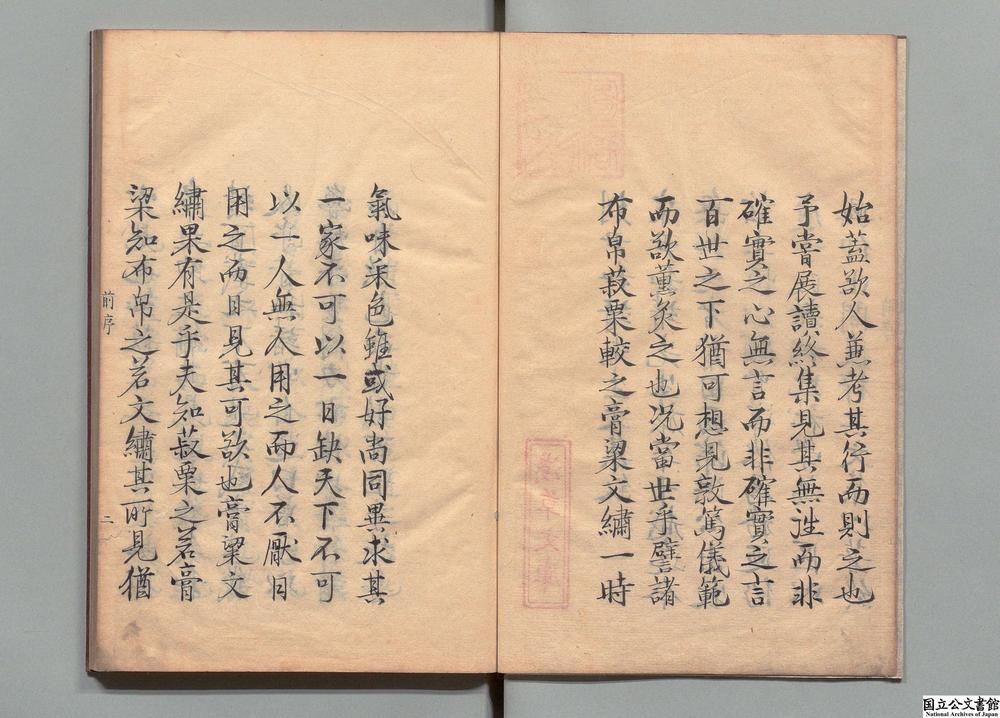 始蓋欲人兼考其行而則之也
予嘗展讀終集見其無詿而非
確實之心無言而非確實之言
百世之下猶可想見敦篤儀範
而欲薰炙之也况當世乎譬諸
布帛菽粟較之膏粱文繡一時
氣味采色雖或好尚同異求其
一家不可以一日缺天下不可
以一人無人用之而人不厭日
用之而日見其可欲也膏粱文
繡果有是乎夫知菽粟之若膏
粱知布帛之若文繡其所見猶
前序
二
国立公文書館
National Archives of Japan